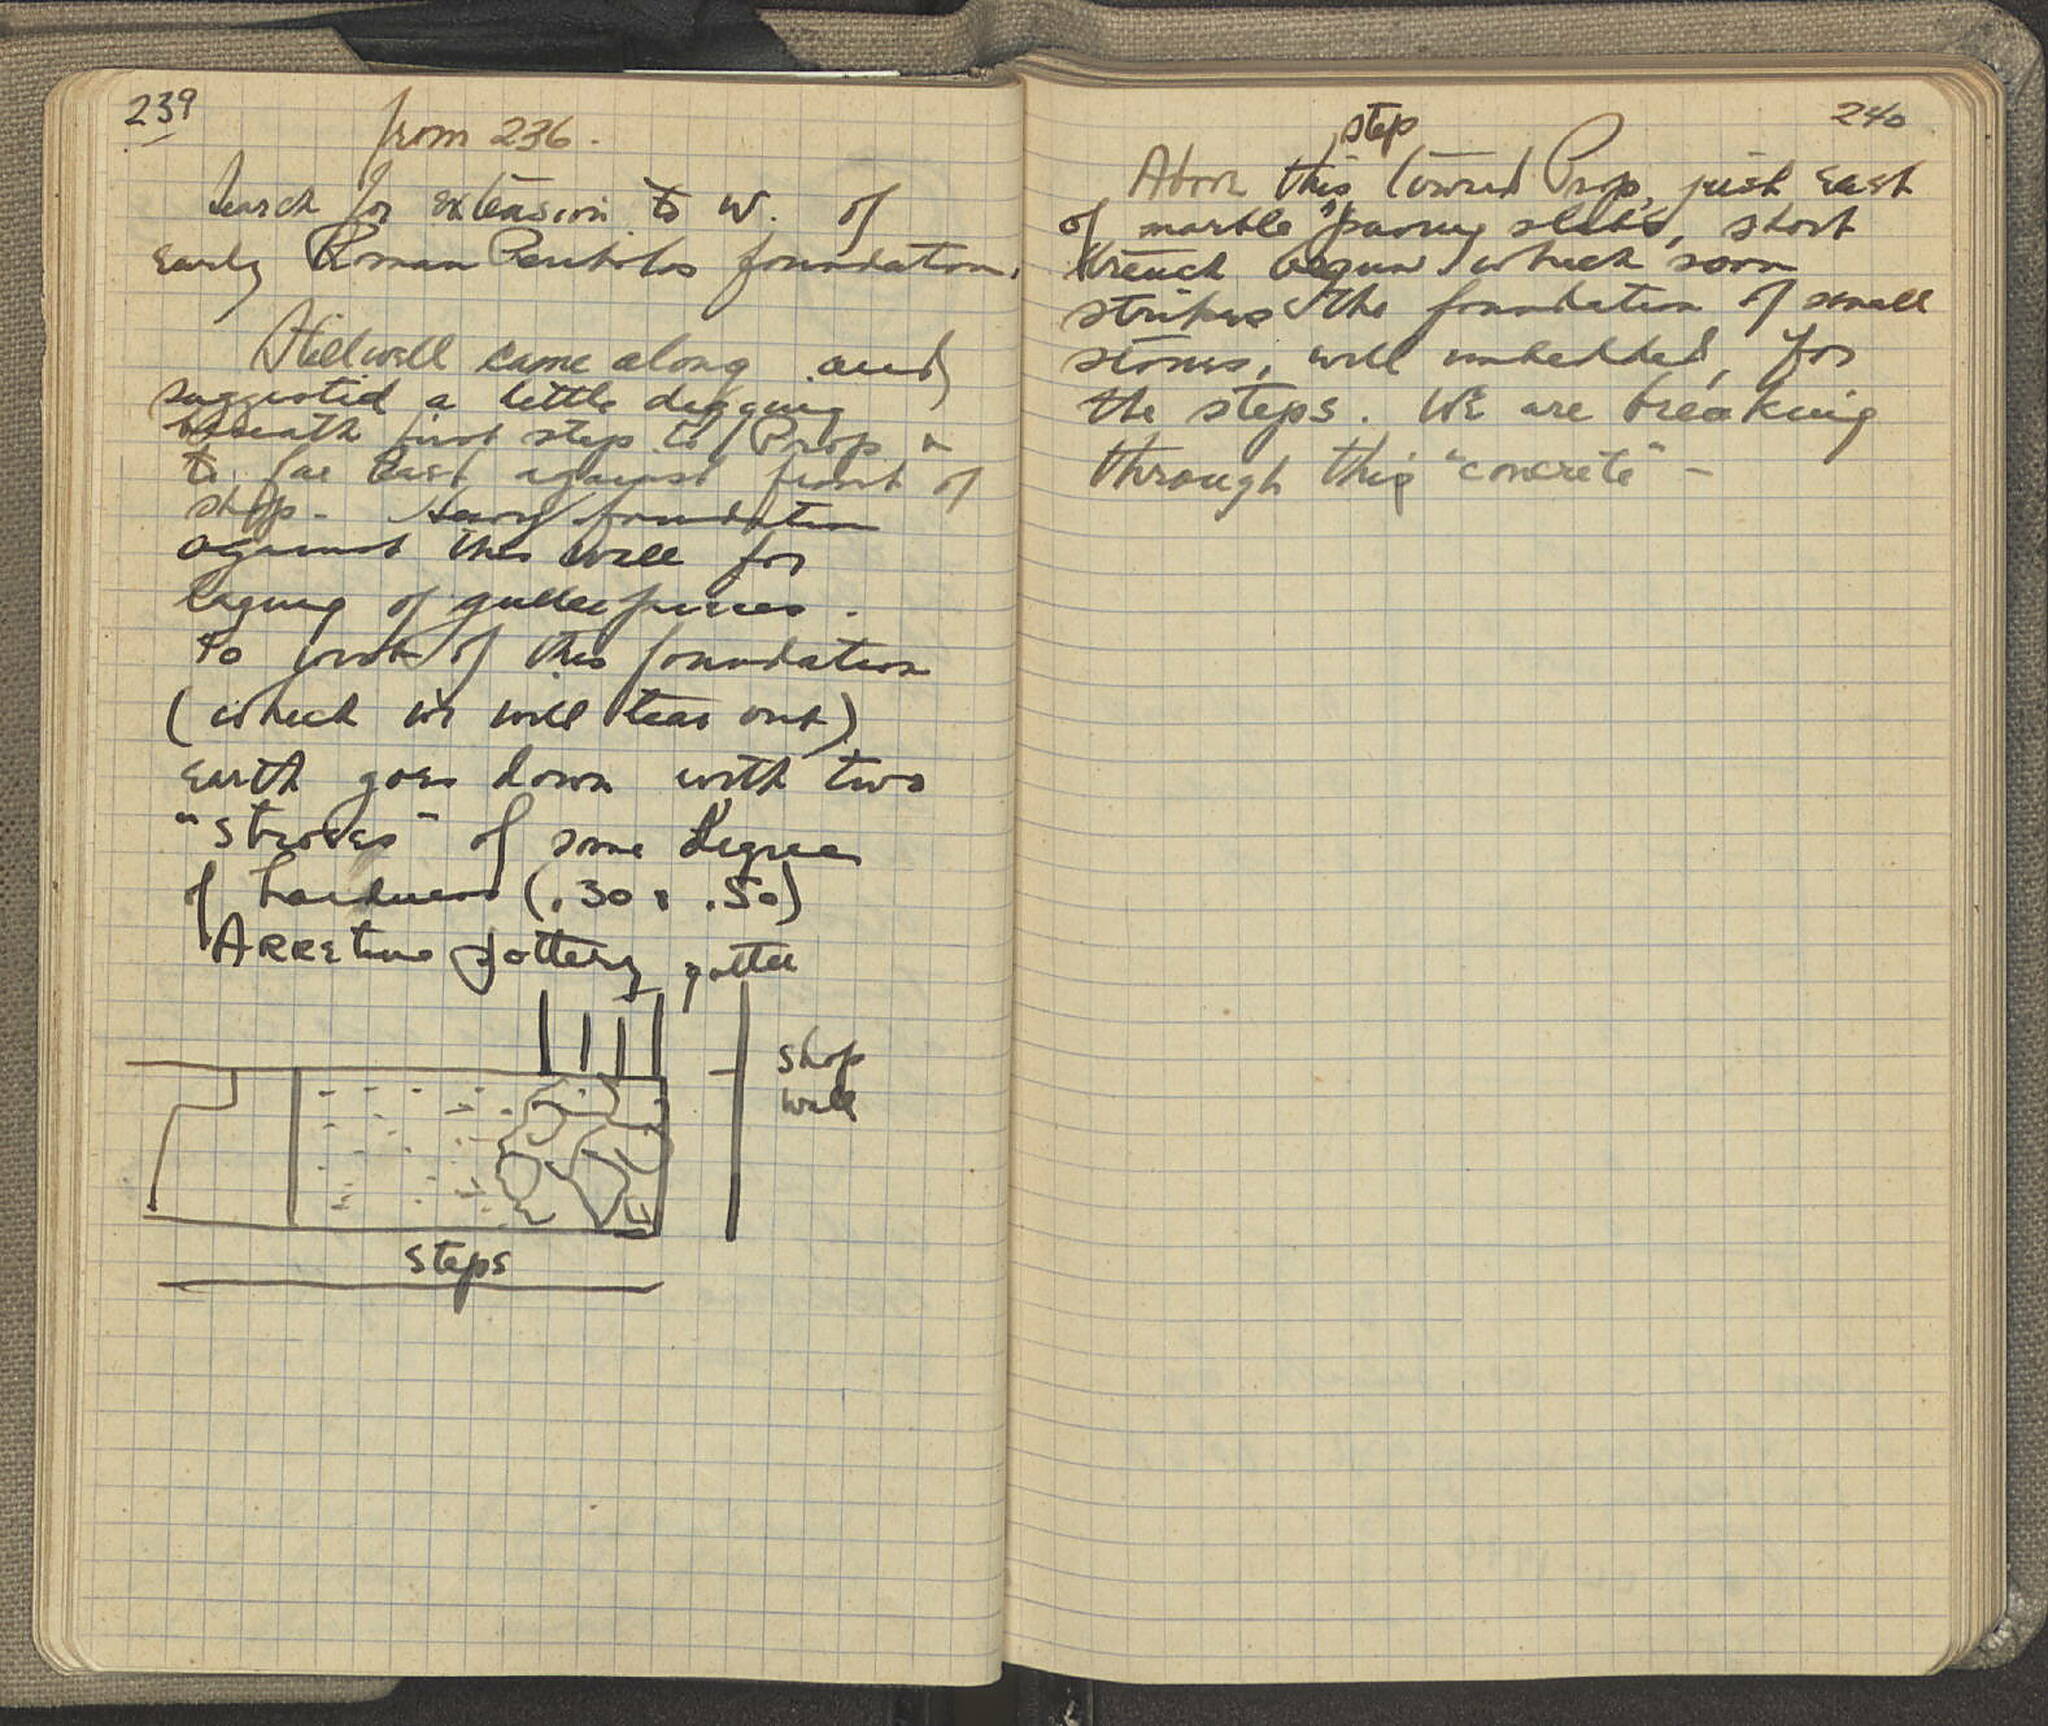 239
from 236.
Search for extension to W. of
Early Roman Peribolos foundation.
Stillwell came along and
suggested a little digging
beneath first step to Prop &
to far East against front of
shop - Heavy foundation
against this wall for
laying of gutter pieces.
To front of this foundation
(which we will tear out)
Earth goes down with two
"stroses" of some degree
of hardness (.30 & .50)
ARREtine pottery
gutter
shop
wall
steps
240
step
Above this toward Prop, just East
of marble paving slabs, short
trench begun which soon
strikes the foundation of small
stones, well imbedded, for
the steps. WE are breaking
through this "concrete" -